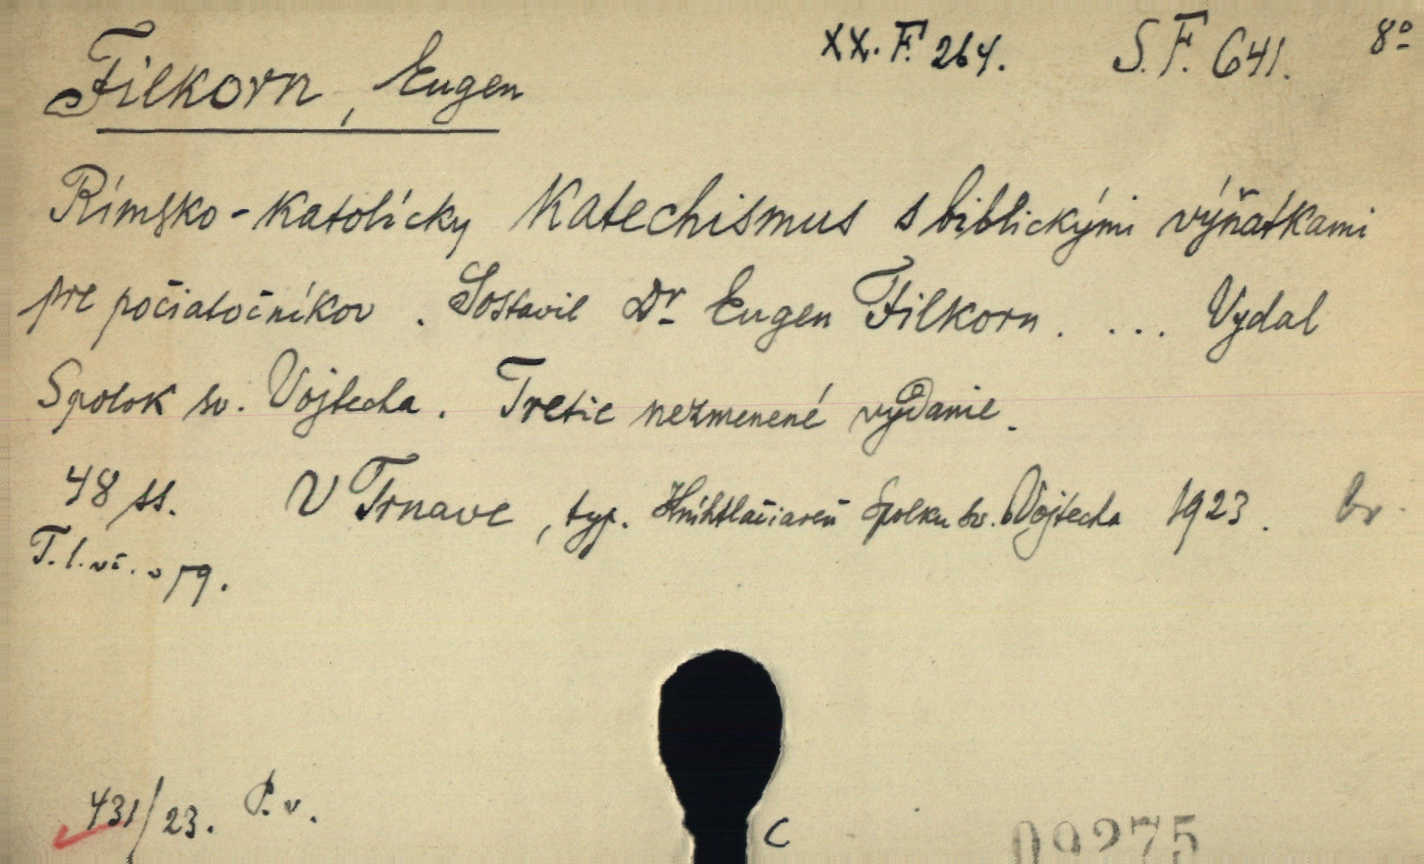 XX. F. 264. S. F. 641. 8º
Filkorn, Eugen
Rímsko-katolícky Katechismus s biblickými výňatkami
pre počiatočníkov. Sostavil Dr Eugen Filkorn. ... Vydal
Spolok sv. Vojtecha. Tretie nezmenené vydanie.
48 ss. V Trnave, typ. Kníhtlačiareň Spolku sv. Vojtecha 1923. br.
431/23. P. v.
C
09275